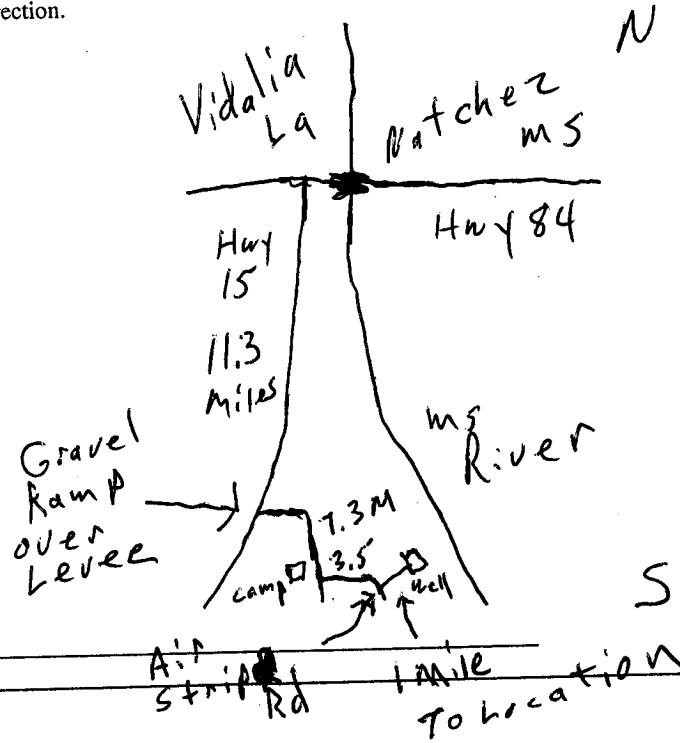 ection.
N
Vidalia
La
Natchez
ms
Hwy 84
Hwy
15
11.3
miles
ms
River
Gravel
Ramp
over
Levee
7.3 M
3.5
camp
well
S
Air
Strip
Rd
1 Mile
To Location